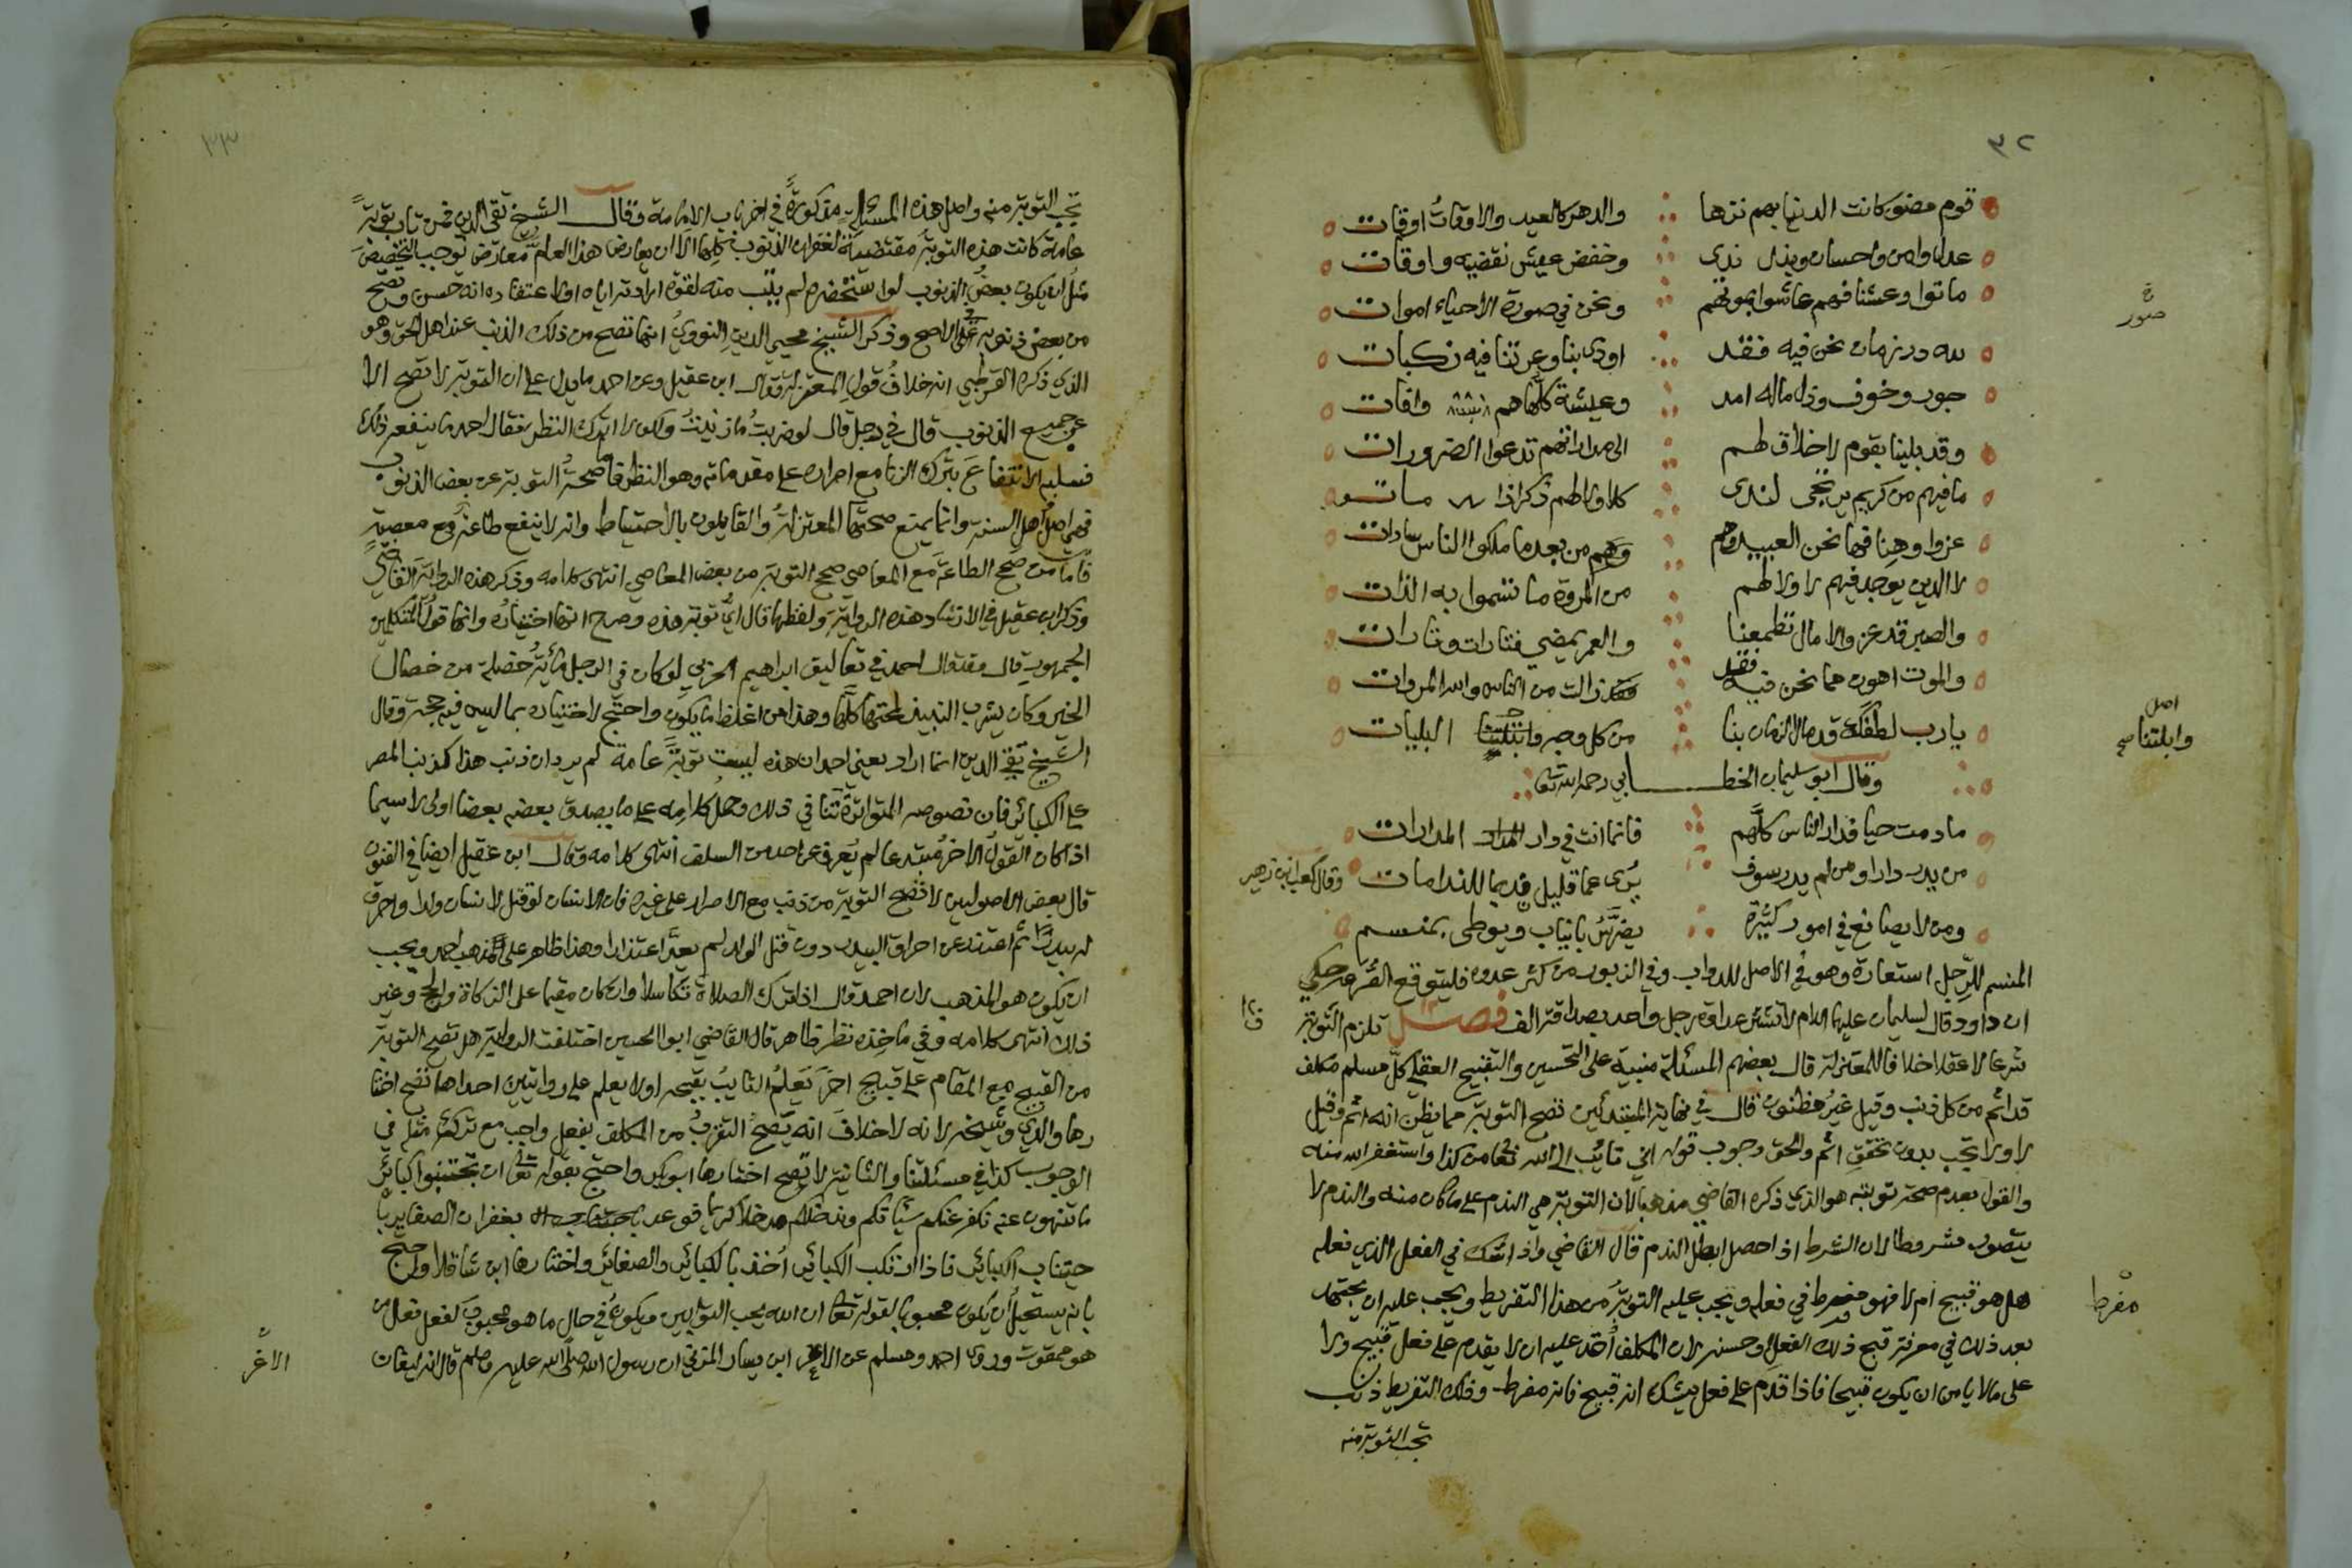 ٣٢
قوم مضوا كانت الدنيا بهم نزها والدهر كالعيد والاوقات اوقات
عدل وامن واحسان وبذل ندى وخفض عيش نقضيه واوقات
ماتوا وعشنا فهم عاشوا بموتهم ونحن في صورة الاحياء اموات
صور
لله در زمان نحن فيه فقد اودى بنا وعرتنا فيه نكبات
جور وخوف وذل ماله امد وعيشة كلها هم وافات
وقد بلينا بقوم لا خلاق لهم الى مداراتهم تدعوا الضرورات
ما فيهم من كريم يرتجى لندى كلا ولا لهم ذكر اذا ماتوا
عزوا وهنا فها نحن العبيد وهم وهم من بعد ما ملكوا الناس سادات
لا الدين يوجد فيهم لا ولا لهم من المروة ما تسموا به الذات
والصبر قد عز والامال تطمعنا والعمر يمضي فتارات وتارات
والموت اهون مما نحن فيه فقد زالت من الناس والله المروات
يا رب لطفك قد مال الزمان بنا من كل وجه وابتلتنا البليات
اصل
وابلتنا صح
وقال ابو سليمان الخطابي رحمه الله تعالى
ما دمت حيا فدار الناس كلهم فانما انت في دار المدارات
من يدر دارا ومن لم يدر سوف يرى عما قليل نديما للندامات وقال كعب ابن زهير
ومن لا يصانع في امور كثيرة يضرس بانياب ويوطى بمنسم
المنسم للرجل استعارة وهو في الاصل للدواب وفي الزبور من كثر عدوه فليتوقع الصرعة حكي
ان داود قال لسليمان عليهما السلام لا تشتر عداوة رجل واحد بصداقة الف فصل تلزم التوبة
شرعا لا عقلا خلافا للمعتزلة قال بعضهم المسئلة مبنية على التحسين والتقبيح العقلي كل مسلم مكلف
قد اثم من كل ذنب وقيل غير مظنون قال في نهاية المبتدئين تصح التوبة مما يظن انه اثم وقيل
لا ولا تجب بدون تحقق اثم والحق وجوب قوله اني تائب الى الله تعالى من كذا واستغفر الله منه
والقول بعدم صحة توبته هو الذي ذكره القاضي مذهبا لان التوبة هي الندم على ما كان منه والندم لا
يتصور مشروطا لان الشرط اذا حصل ابطل الندم قال القاضي واذا شك في الفعل الذي فعله
هل هو قبيح ام لا فهو مفرط في فعله وتجب عليه التوبة من هذا التفريط ويجب عليه ان يجتهد
مفرط
بعد ذلك في معرفة قبح ذلك الفعل وحسنه لان المكلف اخذ عليه ان لا يقدم على فعل قبيح ولا
على ما لا يامن ان يكون قبيحا فاذا قدم على فعل يشك انه قبيح فانه مفرط وذلك التفريط ذنب
تجب التوبة منه
٣٣
تجب التوبة منه واصل هذه المسئلة مذكورة في اخر باب الامامة وقال الشيخ تقي الدين فمن تاب توبة
عامة كانت هذه التوبة مقتضية لغفران الذنوب كلها الا ان يعارض هذا العام معارض توجب التخصيص
مثل ان يكون بعض الذنوب لو استحضره لم يتب منه لقوة ارادته اياه او لاعتقاده انه حسن وتصح
من بعض ذنوبه على الاصح وذكر الشيخ محيي الدين النووي انها تصح من ذلك الذنب عند اهل الحق وهو
الذي ذكره القرطبي انه خلاف قول المعتزلة وقال ابن عقيل وعن احمد ما يدل على ان التوبة لا تصح الا
عن جميع الذنوب قال في رجل قال لو ضربت ما زنيت ولكن لا اترك النظر فقال احمد ما ينفعه ذلك
فسلبه الانتفاع بترك الزنا مع اصراره على مقدماته وهو النظر فاما صحة التوبة عن بعض الذنوب
فهي اصل اهل السنة وانما يمنع صحتها المعتزلة والقايلون بالاحتياط وانه لا ينفع طاعة مع معصية
فاما من صحح الطاعة مع المعاصي صحح التوبة من بعض المعاصي انتهى كلامه وذكر هذه الرواية القاضي
وذكر ابن عقيل في الارشاد هذه الرواية ولفظها قال اي توبة هذه وصرح انها اختياره وانها قول المتكلمين
الجمهور قال وقد قال احمد في تعاليق ابراهيم الحربي لو كان في الرجل مائة خصلة من خصال
الخير وكان يشرب النبيذ لمحتها كلها وهذا من اغلظ ما يكون واحتج لاختياره بما ليس فيه حجة وقال
الشيخ تقي الدين انما اراد يعني احمد ان هذه ليست توبة عامة لم يرد ان ذنب هذا كذنب المصر
على الكبائر فان نصوصه المتواترة تنافي ذلك وحمل كلامه على ما يصدق بعضه بعضا اولى لا سيما
اذا كان القول الاخر مبتدعا لم يعرف عن احد من السلف انتهى كلامه وقال ابن عقيل ايضا في الفنون
قال بعض الاصوليين لا تصح التوبة من ذنب مع الاصرار على غيره فان الانسان لو قتل لانسان ولدا واحرق
له بيدرا ثم اعتذر عن احراق البيدر دون قتل الولد لم يعد اعتذارا وهذا ظاهر على مذهب احمد ويجب
ان يكون هو المذهب لان احمد قال اذا ترك الصلاة تكاسلا وان كان مقيما على الزكاة والحج وغير
ذلك انتهى كلامه وفي ماخذه نظر ظاهر قال القاضي ابو الحسين اختلفت الرواية هل تصح التوبة
من القبيح مع المقام على قبيح اخر يعلم التايب بقبحه او لا يعلم على روايتين احداهما تصح اختا
رها والدي وشيخه لانه لا خلاف انه يصح التقرب من المكلف بفعل واجب مع تركه مثله في
الوجوب كذا في مسئلتنا والثانية لا تصح اختارها ابو بكر واحتج بقوله تعالى ان تجتنبوا كبائر
ما تنهون عنه نكفر عنكم سيئاتكم وندخلكم مدخلا كريما فوعد بغفران الصغاير با
جتناب الكبائر فاذا ارتكب الكبائر اخذ بالكبائر والصغائر واختارها ابن شاقلا واحتج
بانه يستحيل ان يكون محبوبا لقوله تعالى ان الله يحب التوابين ويكون في حال ما هو محبوب لفعل فعل من
هو ممقوت وروى احمد ومسلم عن الاغر ابن يسار المزني ان رسول الله صلى الله عليه وسلم قال انه ليغان
الاغر